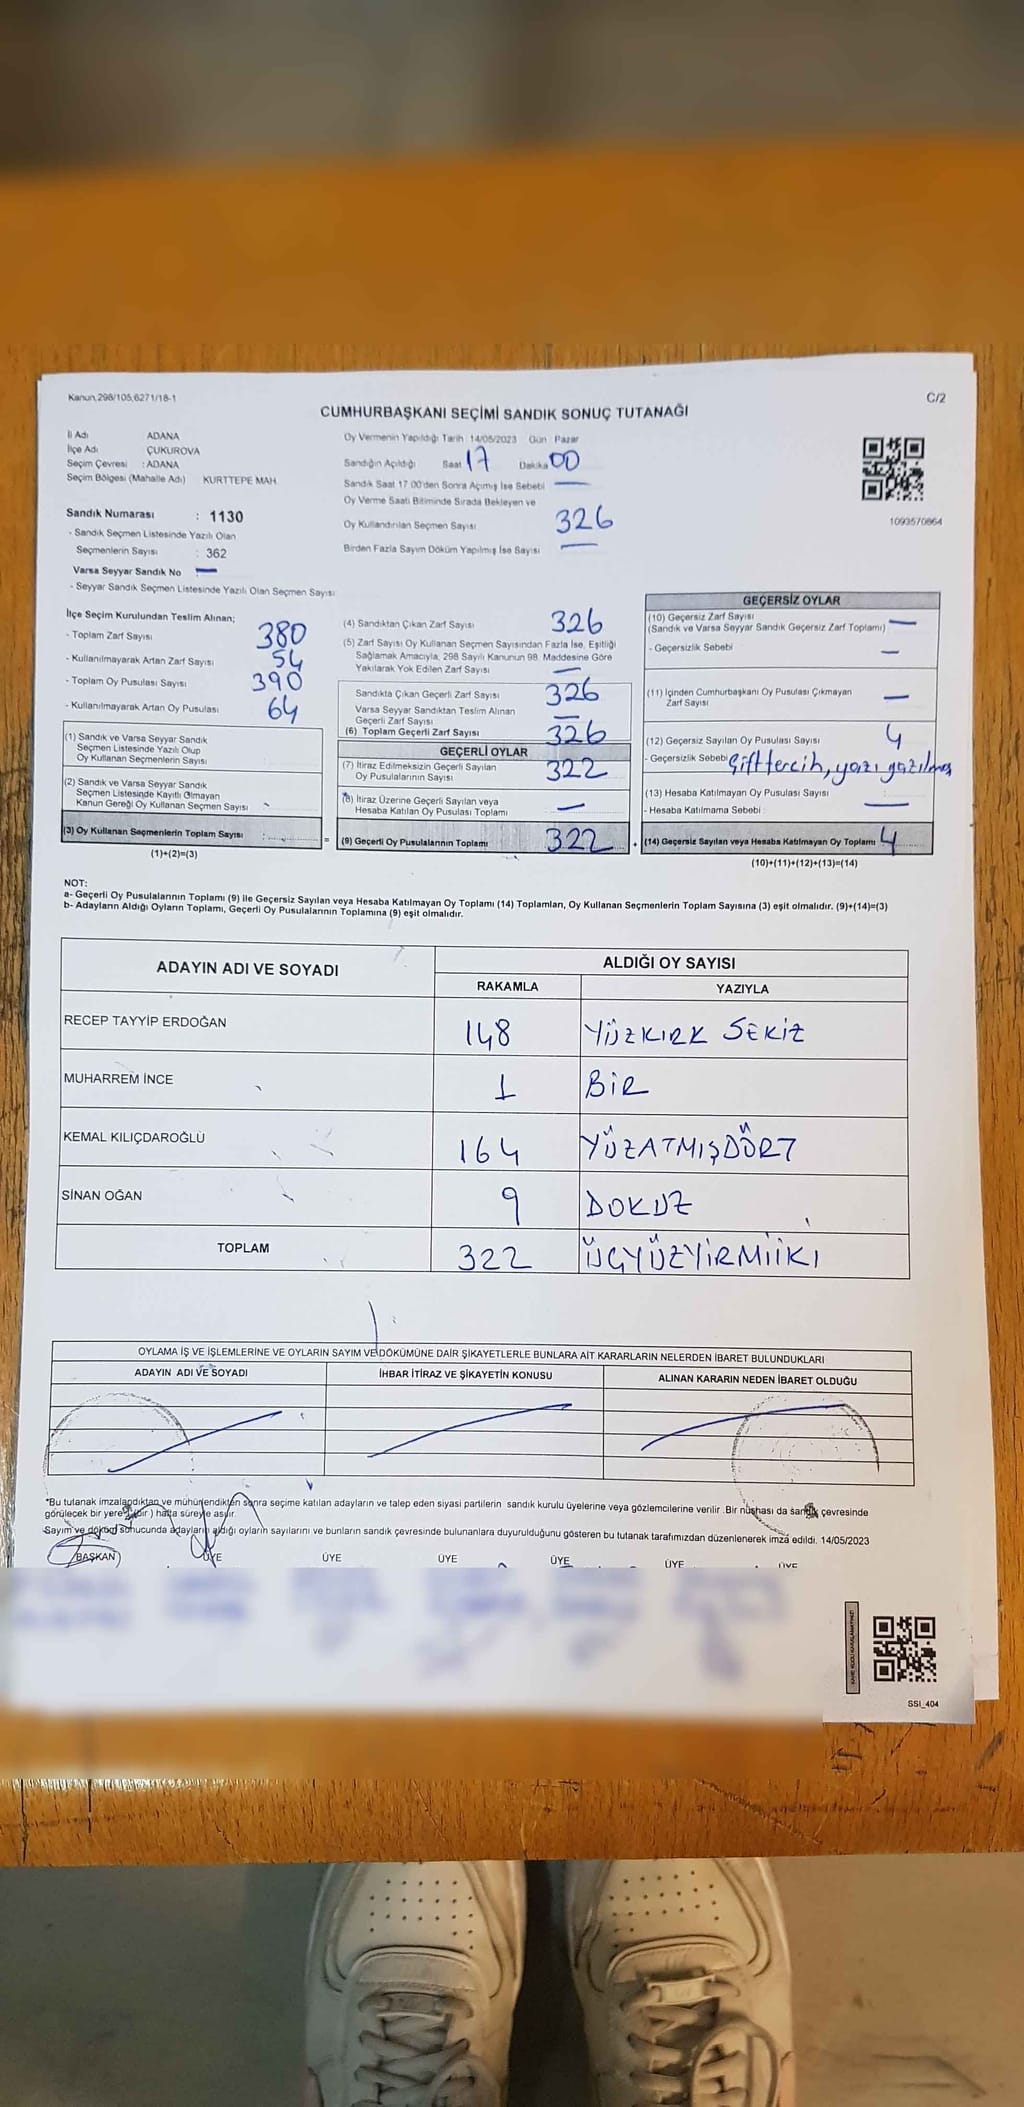 Kanun,298/105,6271/18-1
C/2
CUMHURBAŞKANI SEÇİMİ SANDIK SONUÇ TUTANAĞI
İl Adı ADANA
İlçe Adı ÇUKUROVA
Seçim Çevresi : ADANA
Seçim Bölgesi (Mahalle Adı) KURTTEPE MAH.
Oy Vermenin Yapıldığı Tarih 14/05/2023 Gün Pazar
Sandığın Açıldığı Saat 17 Dakika 00
Sandık Saat 17:00'den Sonra Açımış İse Sebebi —
Oy Verme Saati Bitiminde Sırada Bekleyen ve
Oy Kullandırılan Seçmen Sayısı 326
Birden Fazla Sayım Döküm Yapılmış İse Sayısı —
1093570864
Sandık Numarası : 1130
- Sandık Seçmen Listesinde Yazılı Olan
Seçmenlerin Sayısı : 362
Varsa Seyyar Sandık No —
- Seyyar Sandık Seçmen Listesinde Yazılı Olan Seçmen Sayısı
İlçe Seçim Kurulundan Teslim Alınan;
- Toplam Zarf Sayısı 380
- Kullanılmayarak Artan Zarf Sayısı 54
- Toplam Oy Pusulası Sayısı 390
- Kullanılmayarak Artan Oy Pusulası 64
(1) Sandık ve Varsa Seyyar Sandık
Seçmen Listesinde Yazılı Olup
Oy Kullanan Seçmenlerin Sayısı
(2) Sandık ve Varsa Seyyar Sandık
Seçmen Listesinde Kayıtlı Olmayan
Kanun Gereği Oy Kullanan Seçmen Sayısı
(3) Oy Kullanan Seçmenlerin Toplam Sayısı :
(1)+(2)=(3)
(4) Sandıktan Çıkan Zarf Sayısı 326
(5) Zarf Sayısı Oy Kullanan Seçmen Sayısından Fazla İse, Eşitliği
Sağlamak Amacıyla, 298 Sayılı Kanunun 98. Maddesine Göre
Yakılarak Yok Edilen Zarf Sayısı —
Sandıkta Çıkan Geçerli Zarf Sayısı 326
Varsa Seyyar Sandıktan Teslim Alınan
Geçerli Zarf Sayısı —
(6) Toplam Geçerli Zarf Sayısı 326
GEÇERLİ OYLAR
(7) İtiraz Edilmeksizin Geçerli Sayılan
Oy Pusulalarının Sayısı 322
(8) İtiraz Üzerine Geçerli Sayılan veya
Hesaba Katılan Oy Pusulası Toplamı —
(9) Geçerli Oy Pusulalarının Toplamı 322
GEÇERSİZ OYLAR
(10) Geçersiz Zarf Sayısı
(Sandık ve Varsa Seyyar Sandık Geçersiz Zarf Toplamı) —
- Geçersizlik Sebebi —
(11) İçinden Cumhurbaşkanı Oy Pusulası Çıkmayan
Zarf Sayısı —
(12) Geçersiz Sayılan Oy Pusulası Sayısı 4
- Geçersizlik Sebebi Çift tercih, yazı yazılmış
(13) Hesaba Katılmayan Oy Pusulası Sayısı —
- Hesaba Katılmama Sebebi :
(14) Geçersiz Sayılan veya Hesaba Katılmayan Oy Toplamı 4
(10)+(11)+(12)+(13)=(14)
NOT:
a- Geçerli Oy Pusulalarının Toplamı (9) ile Geçersiz Sayılan veya Hesaba Katılmayan Oy Toplamı (14) Toplamları, Oy Kullanan Seçmenlerin Toplam Sayısına (3) eşit olmalıdır. (9)+(14)=(3)
b- Adayların Aldığı Oyların Toplamı, Geçerli Oy Pusulalarının Toplamına (9) eşit olmalıdır.
ADAYIN ADI VE SOYADI ALDIĞI OY SAYISI
RAKAMLA YAZIYLA
RECEP TAYYİP ERDOĞAN 148 YÜZKIRK SEKİZ
MUHARREM İNCE 1 BİR
KEMAL KILIÇDAROĞLU 164 YÜZATMIŞDÖRT
SİNAN OĞAN 9 DOKUZ
TOPLAM 322 ÜÇYÜZYİRMİİKİ
OYLAMA İŞ VE İŞLEMLERİNE VE OYLARIN SAYIM VE DÖKÜMÜNE DAİR ŞİKAYETLERLE BUNLARA AİT KARARLARIN NELERDEN İBARET BULUNDUKLARI
ADAYIN ADI VE SOYADI İHBAR İTİRAZ VE ŞİKAYETİN KONUSU ALINAN KARARIN NEDEN İBARET OLDUĞU
*Bu tutanak imzalandıktan ve mühürlendikten sonra seçime katılan adayların ve talep eden siyasi partilerin sandık kurulu üyelerine veya gözlemcilerine verilir .Bir nüshası da sandık çevresinde
görülecek bir yere (bir ) hafta süreyle asılır.
Sayım ve döküm sonucunda adayların aldığı oyların sayılarını ve bunların sandık çevresinde bulunanlara duyurulduğunu gösteren bu tutanak tarafımızdan düzenlenerek imza edildi. 14/05/2023
BAŞKAN ÜYE ÜYE ÜYE ÜYE ÜYE ÜYE
SSI_404